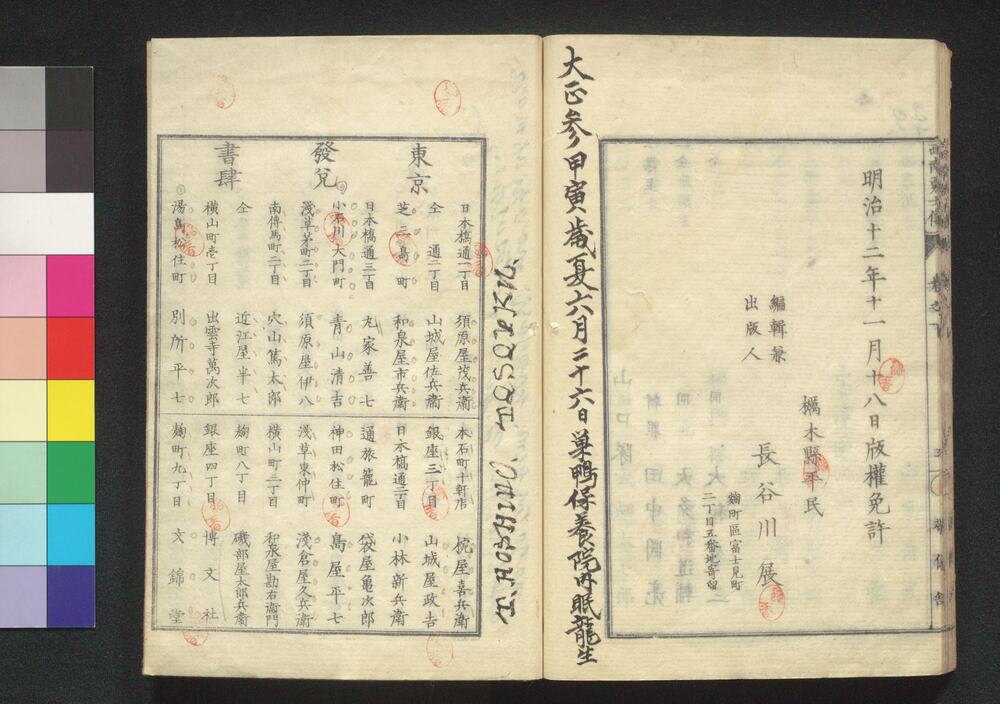 明治十二年十一月十八日版權免許
編輯兼
出版人
櫔木縣平民
長谷川展
麹町區富士見町
二丁目五番地寄留
大正参甲寅歳夏六月二十六日巣鴨保養院内眠龍生
東京
發兌
書肆
日本橋通一丁目 須原屋茂兵衞
仝 通二丁目 山城屋佐兵衞
芝三島町 和泉屋市兵衞
日本橋通三丁目 丸家善七
小石川大門町 青山清吉
淺草茅町二丁目 須原屋伊八
南傳馬町二丁目 穴山篤太郎
仝 近江屋半七
横山町壱丁目 出雲寺萬次郎
湯島松住町 別所平七
本石町十軒店 椀屋喜兵衞
銀座三丁目 山城屋政吉
日本橋通二丁目 小林新兵衞
通旅籠町 袋屋亀次郎
神田松住町 島屋平七
淺草東仲町 淺倉屋久兵衞
横山町三丁目 和泉屋勘右衞門
麹町八丁目 磯部屋太郎兵衞
銀座四丁目 博文社
麹町九丁目 文錦堂